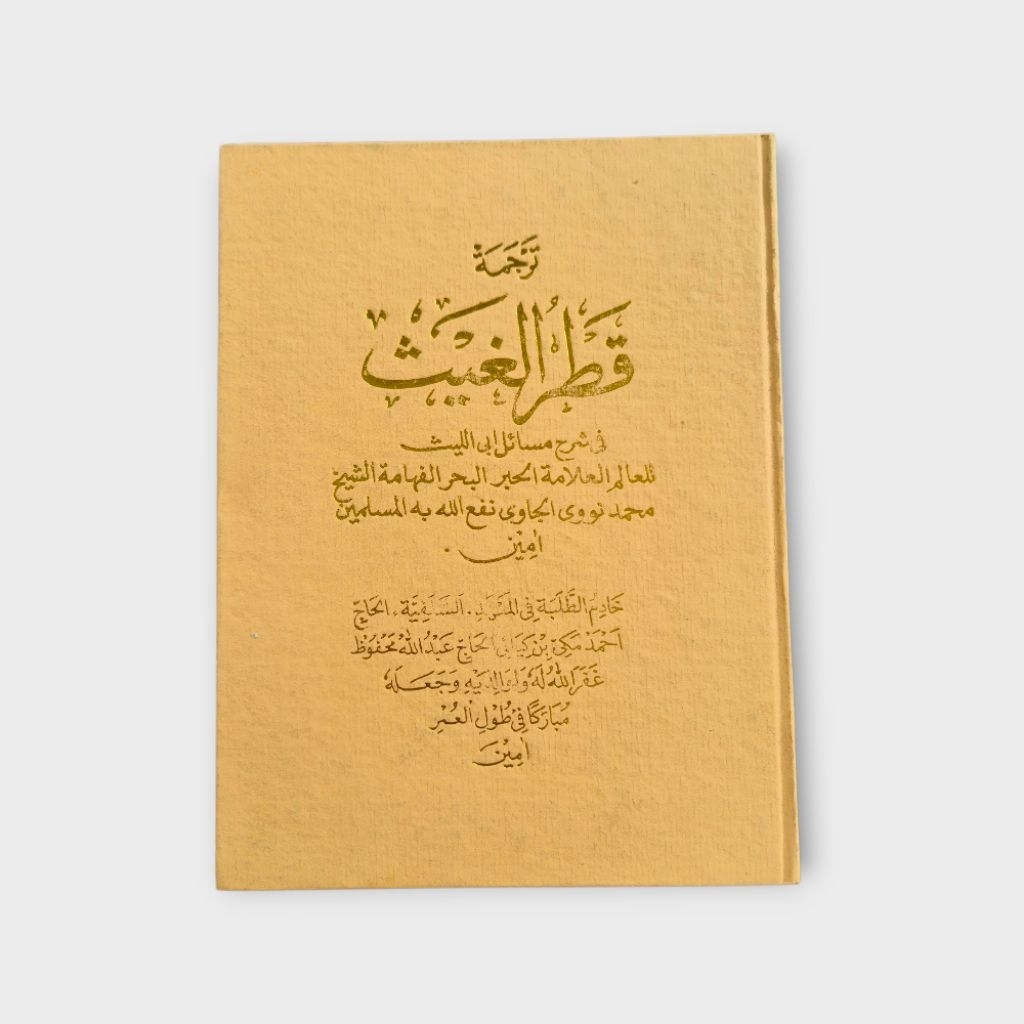 تَرْجَمَةْ
قَطْرُ الْغَيْث
فى شرح مسائل ابى الليث
للعالم العلامة الحبر البحر الفهامة الشيخ
محمد نووى الجاوى نفع الله به المسلمين
امِين .
خَادِمُ الطَّلَبَةِ فِى السَّلَفِيَّة، الحَاجّ
اَحْمَدْ مَكِىّ بِنْ كِيَاهِى الحَاجّ عَبْدُ اللهْ مَحْفُوْظ
غَفَرَ اللهُ لَهُ وَلِوَالِدَيْهِ وَجَعَلَهُ
مُبَارَكًا فِىْ طُوْلِ الْعُمْرِ
اٰمِيْنَ